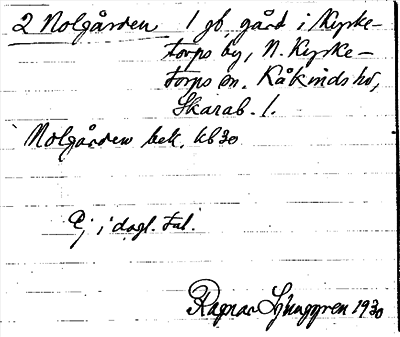 2 Nolgården 1 gb. gård i Kyrke-
torps by, N. Kyrke-
torps sn. Kåkinds hd,
Skarab. l.
Nolgården bek. kb 30
Ej i dagl. tal.
Ragnar Ljunggren 1930